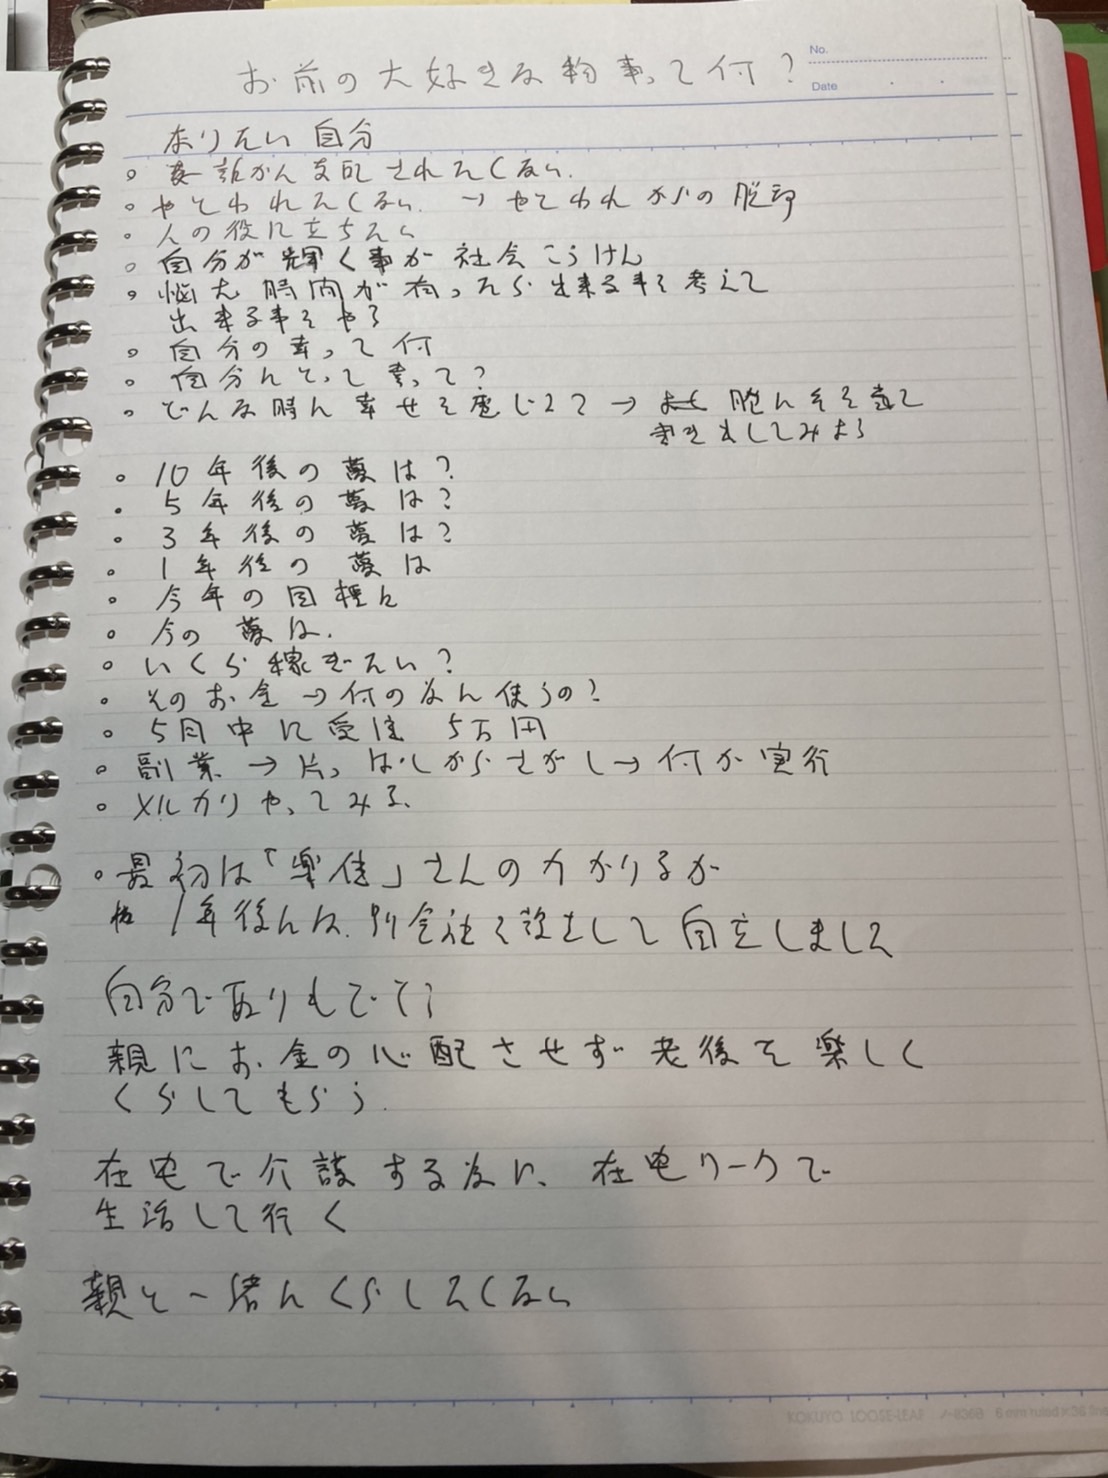 お前の大好きな物事って何?
No.
Date
なりたい自分
誰かに支配されたくない.
やとわれたくない. → やとわれからの脱却
人の役に立ちたい
自分が輝く事が社会こうけん
悩む時間が有ったら出来る事を考えて
出来る事をやる
自分の幸って何
自分にとって幸って?
どんな時に幸せを感じるて → 胸にそを当て
書き出してみよう
10年後の夢は?
5年後の夢は?
3年後の夢は?
1年後の夢は
今年の目標は
今の夢は.
いくら稼ぎたい?
そのお金→何のために使うの?
5月中に受注 5万円
副業→片っぱしからさがし→何か実行
メルカリやってみる.
最初は「楽侍」さんの力かりるが
1年後には、別会社を設立して自立しました
自分でありもでてう
親にお金の心配させず老後を楽しく
くらしてもらう.
在宅で介護する為に、在宅ワークで
生活して行く
親と一緒にくらしたくない
KOKUYO LOOSE-LEAF 6mm ruled×36 lines